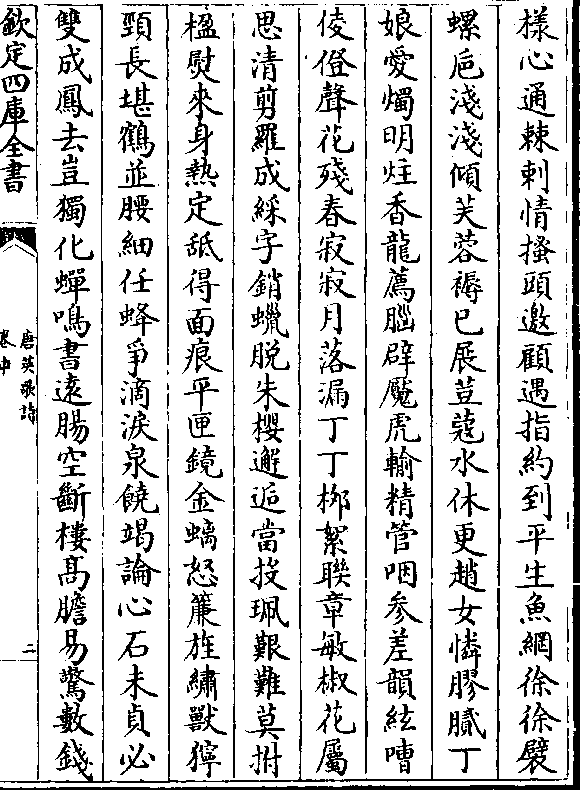 樣心通棘刺情搔頭邀顧遇指約到平生魚網徐徐襞
螺巵淺淺傾芙蓉褥已展荳蔻水休更趙女憐膠膩丁
娘愛燭明炷香龍薦腦辟魘虎輸精管咽參差韻絃嘈
倰僜聲花殘春寂寂月落漏丁丁柳絮聯章敏椒花屬
思清剪羅成綵字銷蠟脫朱櫻邂逅當投珮艱難莫拊
楹熨來身熱定舐得面痕平匣鏡金螭怒簾旌繡獸獰
頸長堪鶴並腰細任蜂爭滴淚泉饒竭論心石未貞必
雙成鳳去豈獨化蟬鳴書遠腸空斷樓高膽易驚數錢
欽定四庫全書
唐英歌詩
卷中
二